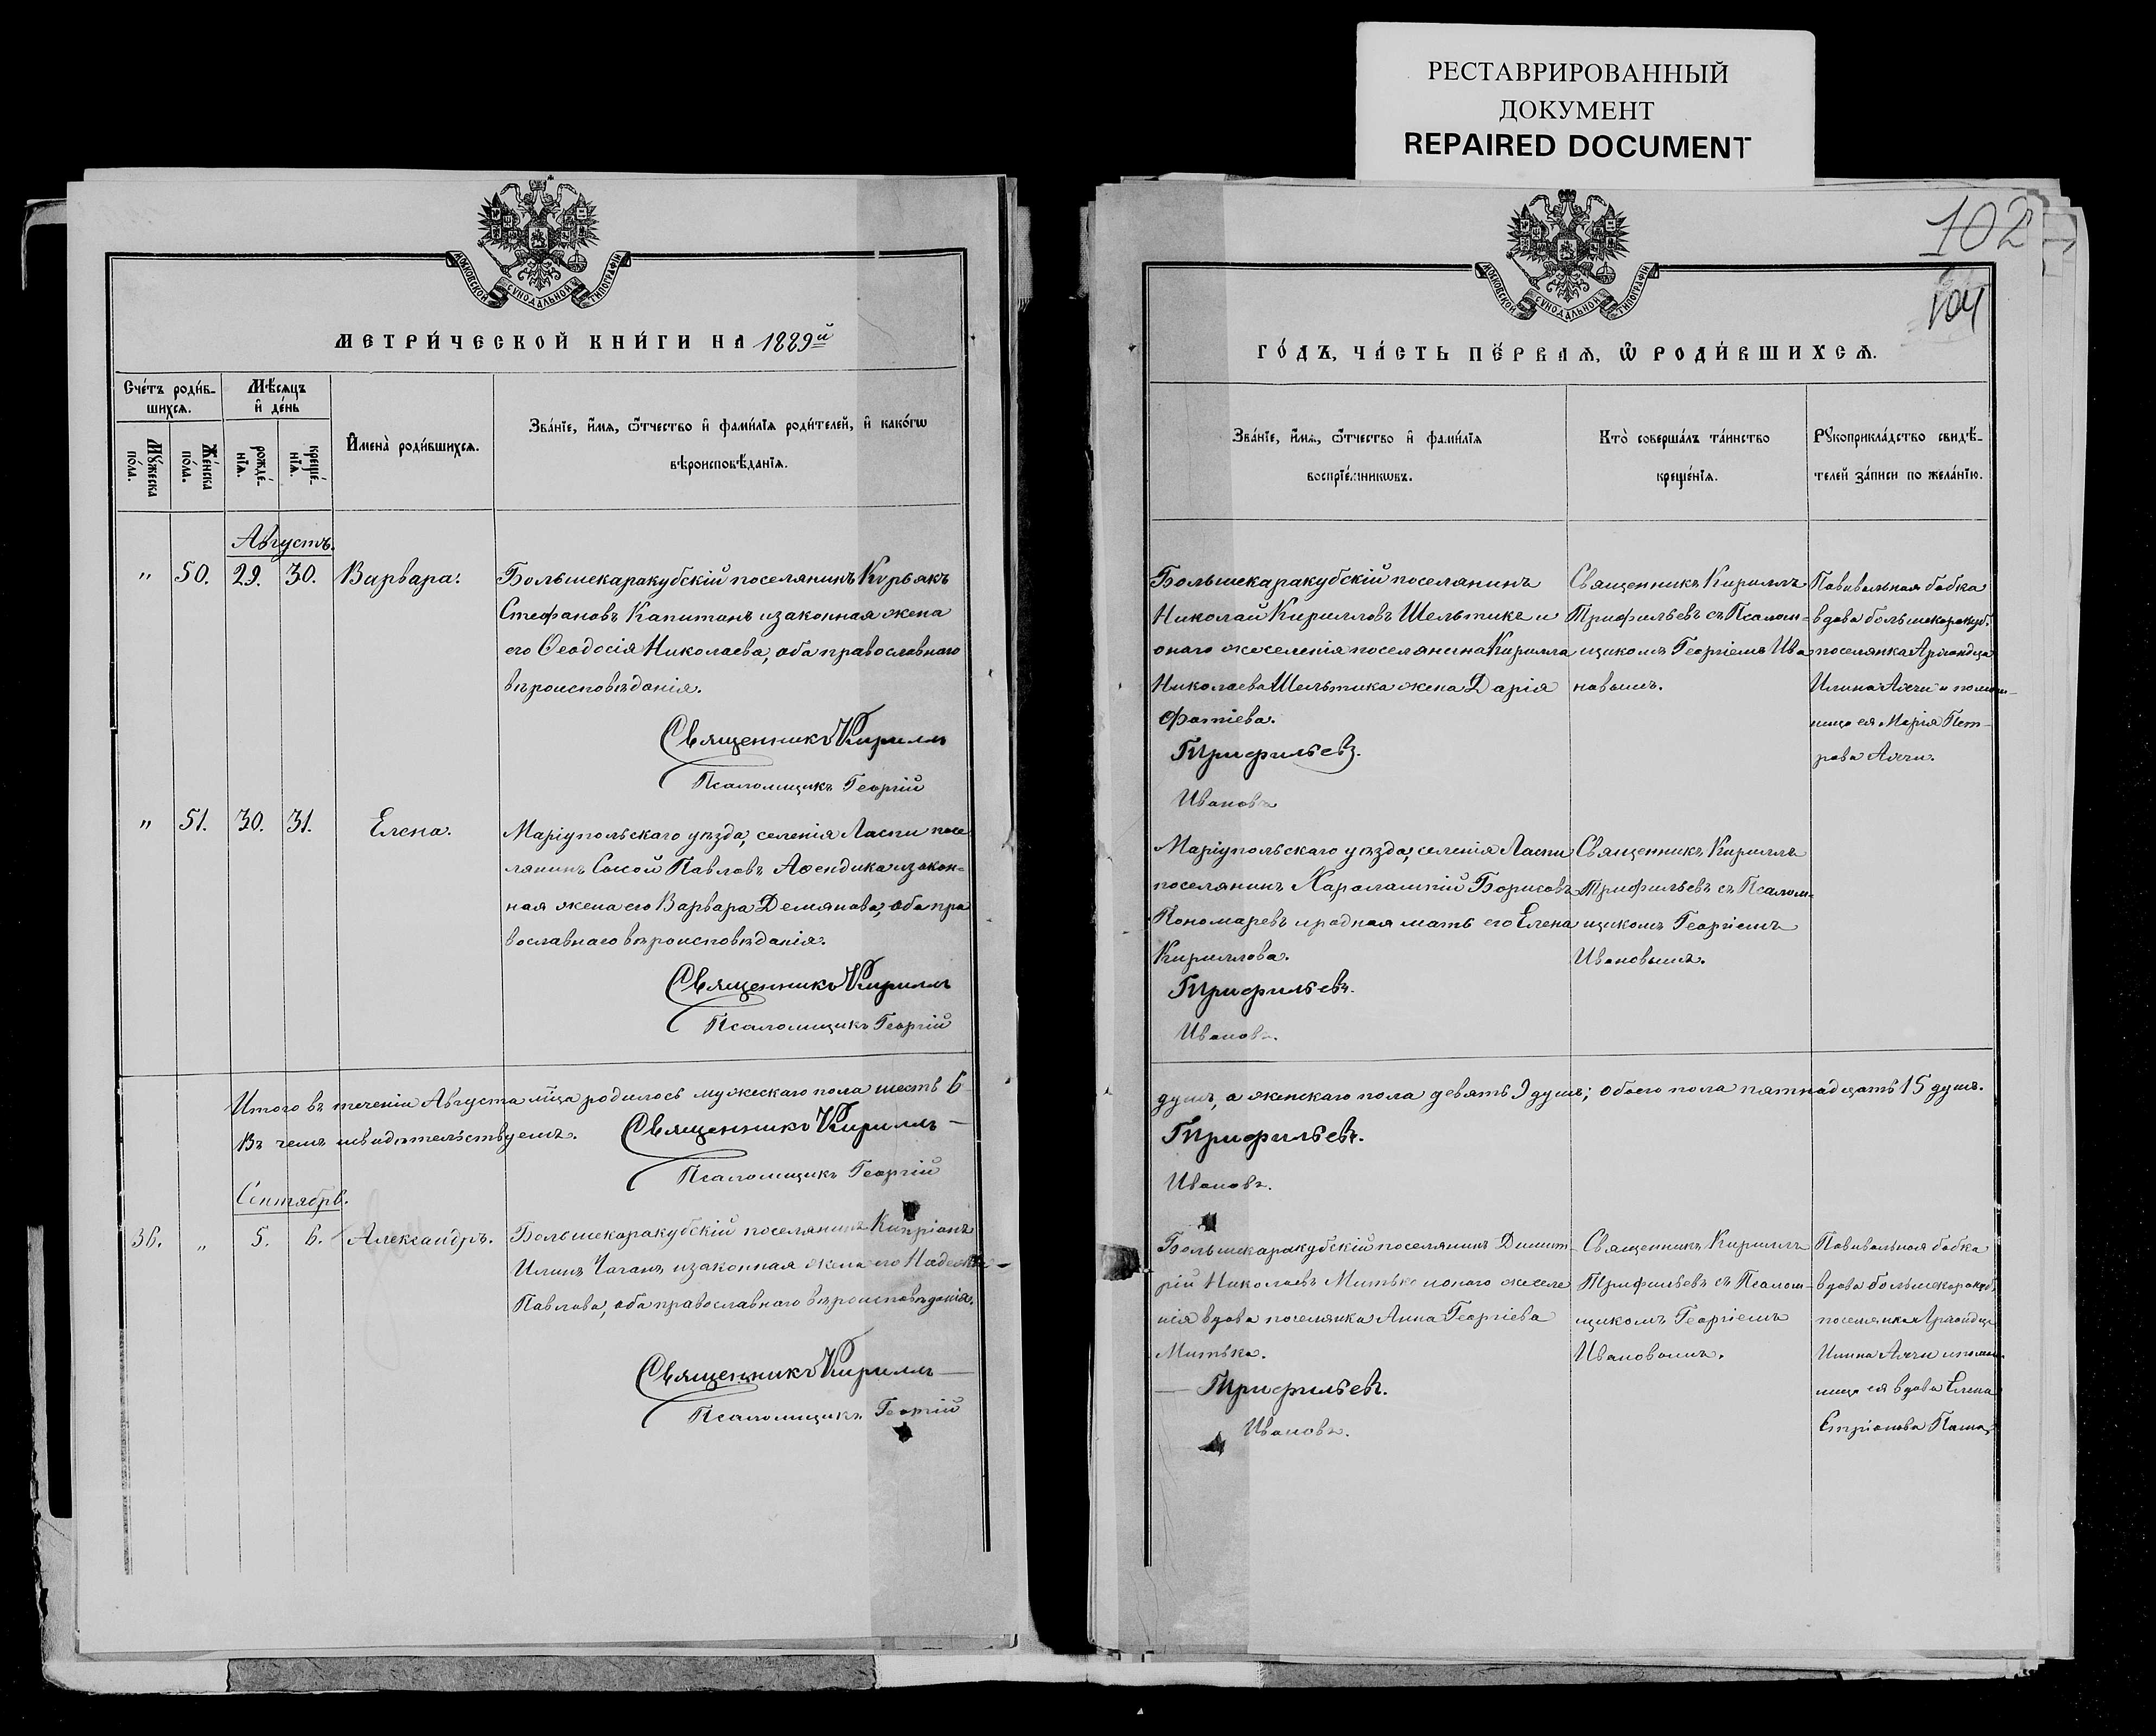 РЕСТАВРИРОВАННЫЙ
ДОКУМЕНТ
REPAIRED DOCUMENT
МОСКОВСКОЙ СУНОДАЛЬНОЙ ТИПОГРАФІИ
МЕТРИ́ЧЕСКОЙ КНИ́ГИ НА 1889й
Сче́тъ роди́в-
шихсѧ.
Мѣ́сѧцъ
и҆ де́нь
Мꙋ́жеска
по́ла.
Же́нска
по́ла.
рожде́-
нїѧ.
креще́-
нїѧ.
И҆мена̀ роди́вшихсѧ.
Зва́нїе, и҆́мѧ, ѻ҆́тчество и҆ фами́лїѧ роди́телей, и҆ како́гѡ
вѣроисповѣ́данїѧ.
Августъ.
" 50. 29. 30. Варвара.
Большекаракубскій поселянинъ Курьякъ
Стефановъ Капитанъ и законная жена
его Ѳеодосія Николаева, оба православнаго
вѣроисповѣданія.
Священникъ Кириллъ
Псаломщикъ Георгій
" 51. 30. 31. Елена.
Маріупольскаго уѣзда, селенія Ласпи посе
лянинъ Савой Павловъ Афендика и закон=
ная жена его Варвара Демянова, оба пра
вославнаго вѣроисповѣданія.
Священникъ Кириллъ
Псаломщикъ Георгій
Итого въ теченіи Августа м͠ца родилось мужескаго пола шесть 6
Въ чемъ свидѣтельствуемъ. Священникъ Кириллъ —
Псаломщикъ Георгій
Сентябрь.
36. " 5. 6. Александръ.
Большекаракубскій поселянинъ Кипріанъ
Илинъ Чаганъ и законная жена его Надежда
Павлова, оба православнаго вѣроисповѣданія.
Священникъ Кириллъ —
Псаломщикъ Георгій
102
МОСКОВСКОЙ СУНОДАЛЬНОЙ ТИПОГРАФІИ
104
ГО́ДЪ, ЧА́СТЬ ПЕ́РВАѦ, Ѡ҆ РОДИ́ВШИХСѦ.
Зва́нїе, и҆́мѧ, ѻ҆́тчество и҆ фами́лїѧ
воспрїе́мникѡвъ.
Кто̀ соверша́лъ та́инство
креще́нїѧ.
Рꙋкоприкла́дство свидѣ́-
телей за́писи по жела́нїю.
Большекаракубскій поселянинъ
Николай Кирилловъ Шельтикъ и
онаго же селенія поселянина Кирилла
Николаева Шельтика жена Дарія
Фотіева.
Трифильевъ.
Ивановъ
Священникъ Кириллъ
Трифильевъ съ Псалом=
щикомъ Георгіемъ Ива
новымъ.
Повивальная бабка
вдова большекаракуб.
поселянка
Илина и помощ-
ница ея Марія Пет-
рова
Маріупольскаго уѣзда, селенія Ласпи
поселянинъ Харлампій Борисовъ
Пономаревъ и родная мать его Елена
Кириллова.
Трифильевъ.
Ивановъ.
Священникъ Кириллъ
Трифильевъ съ Псалом=
щикомъ Георгіемъ
Ивановымъ.
душъ, а женскаго пола девять 9 душъ; обоего пола пятнадцать 15 душъ.
Трифильевъ.
Ивановъ.
Большекаракубскій поселянинъ Димит-
рій Николаевъ Митько и онаго же селе
нія вдова поселянка Анна Георгіева
Митька.
— Трифильевъ.
Ивановъ.
Священникъ Кириллъ
Трифильевъ съ Псалом-
щикомъ Георгіемъ
Ивановымъ.
Повивальная бабка
вдова большекаракуб.
поселянка
Илина и помощ-
ница ея вдова Елена